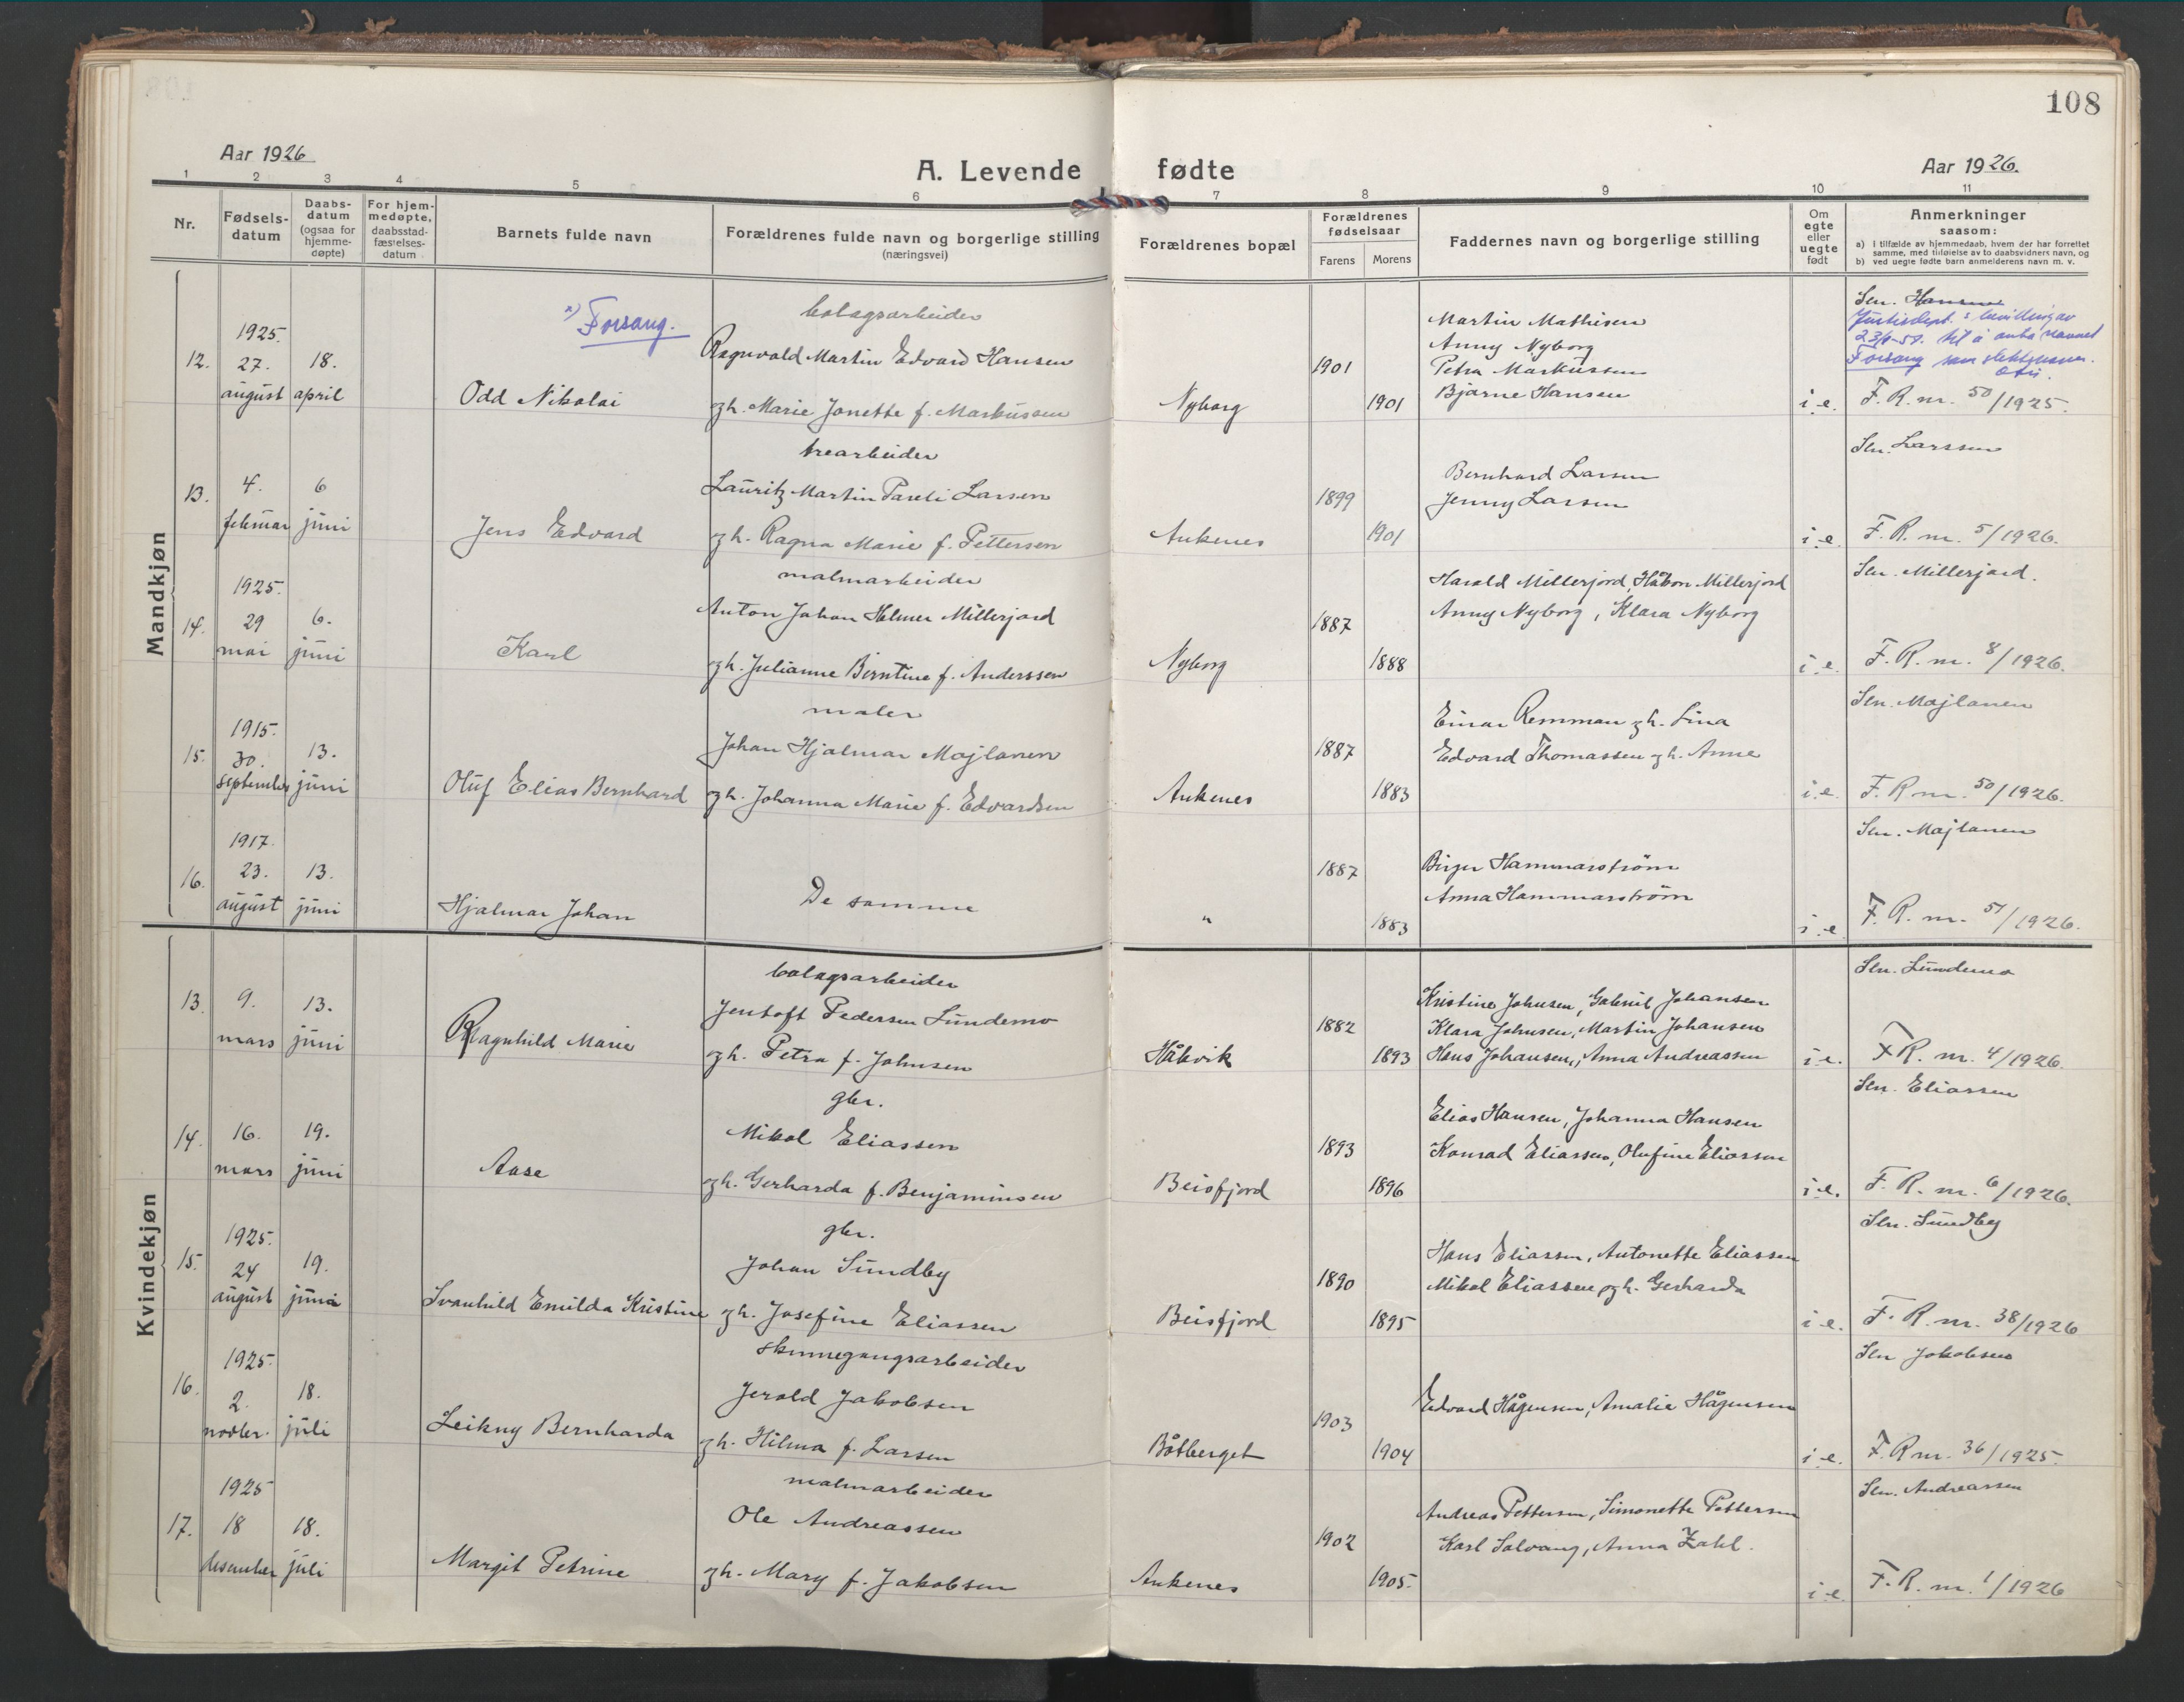 108
Aar 1926
A. Levende fødte
Aar 1926.
1 2 3 4 5 6 7 8 9 10 11
Nr.
Fødsels-
datum
Daabs-
datum
(ogsaa for
hjemme-
døpte)
For hjem-
medøpte,
daabsstad-
fæstelses-
datum
Barnets fulde navn
Forældrenes fulde navn og borgerlige stilling
(næringsvei)
Forældrenes bopæl
Forældrenes
fødselsaar
Farens Morens
Faddernes navn og borgerlige stilling
Om
egte
eller
uegte
født
Anmerkninger
saasom:
a) i tilfælde av hjemmedaab, hvem der har forrettet
samme, med tilføielse av to daabsvidners navn, og
b) ved uegte fødte barn anmelderens navn m. v.
Mandkjøn
x) Forsang.
bolagsarbeider
Sen. Hansen
Justisdept.s bevilling av
til å anta navnet
Forsang som slektsnavn.
1925.
12. 27. 18.
august april
Odd Nikolai
Ragnvald Martin Edvard Hansen
og h. Marie Jonette f. Markussen
Nyborg
1901
1901
Martin Mathisen
Anny Nyborg
Petra Markussen
Bjarne Hansen
i e.
F. R. nr. 50/1925.
trearbeider
Sen. Larssen
13. 4. 6
februar juni
Jens Edvard
Lauritz Martin Pareli Larsen
og h. Ragna Marie f. Pettersen
Ankenes
1899
1901
Bernhard Larsen
Jenny Larsen
i e.
F. R. nr. 5/1926.
malmarbeider
Sen. Millerjord.
1925.
14. 29 6.
mai juni
Karl
Anton Johan Helmer Millerjord
og h. Julianne Berntine f. Anderssen
Nyborg
1887
1888
Harald Millerjord, Håkon Millerjord
Anny Nyborg, Klara Nyborg
i e.
F. R. nr. 8/1926.
maler
Sen. Majlanen
1915.
15. 30. 13.
september juni
Oluf Elias Bernhard
Johan Hjalmar Majlanen
og h. Johanna Marie f. Edvardsen
Ankenes
1887
1883
Einar Remman og h. Lina
Edvard Thomassen og h. Anne
i e.
F. R nr. 50/1926.
Sen. Majlanen
1917.
16. 23. 13.
august juni
Hjalmar Johan
De samme
"
1887
1883
Birger Hammarström
Anna Hammarström
i e.
F. R. nr. 51/1926.
Kvindekjøn
bolagsarbeider
Sen. Lundemo
13. 9. 13.
mars juni
Ragnhild Marie
Jentoft Pedersen Lundemo
og h. Petra f. Johnsen
Håkvik
1882
1893
Kristine Johnsen, Gabriel Johansen
Klara Johnsen, Martin Johansen
Hans Johansen, Anna Andreassen
i e.
F R. nr. 4/1926.
gbr.
Sen. Eliassen
14. 16. 19.
mars juni
Aase
Mikal Eliassen
og h. Gerharda f. Benjaminsen
Beisfjord
1893
1896
Elias Hansen, Johanna Hansen
Konrad Eliassen, Olufine Eliassen
i e.
F. R. nr. 6/1926.
gbr.
Sen. Sundby
1925.
15. 24 19.
august juni
Svanhild Emilda Kristine
Johan Sundby
og h. Josefine Eliassen
Beisfjord
1890
1895
Hans Eliassen, Antonette Eliassen
Mikal Eliassen og h. Gerharda
i e.
F. R. nr. 38/1926
skinnegangsarbeider
Sen Jakobsen
1925.
16. 2. 18.
novbr. juli
Leikny Bernharda
Jerald Jakobsen
og h. Hilma f. Larsen
Båtberget
1903
1904
Edvard Hågensen, Amalie Hågensen
i e.
F. R nr. 36/1925.
malmarbeider
Sen. Andreassen
1925
17. 18 18.
desember juli
Margit Petrine
Ole Andreassen
og h. Mary f. Jakobsen
Ankenes
1902
1905.
Andreas Pettersen, Simonette Pettersen
Karl Solvang, Anna Zahl.
i e.
F. R. nr. 1/1926